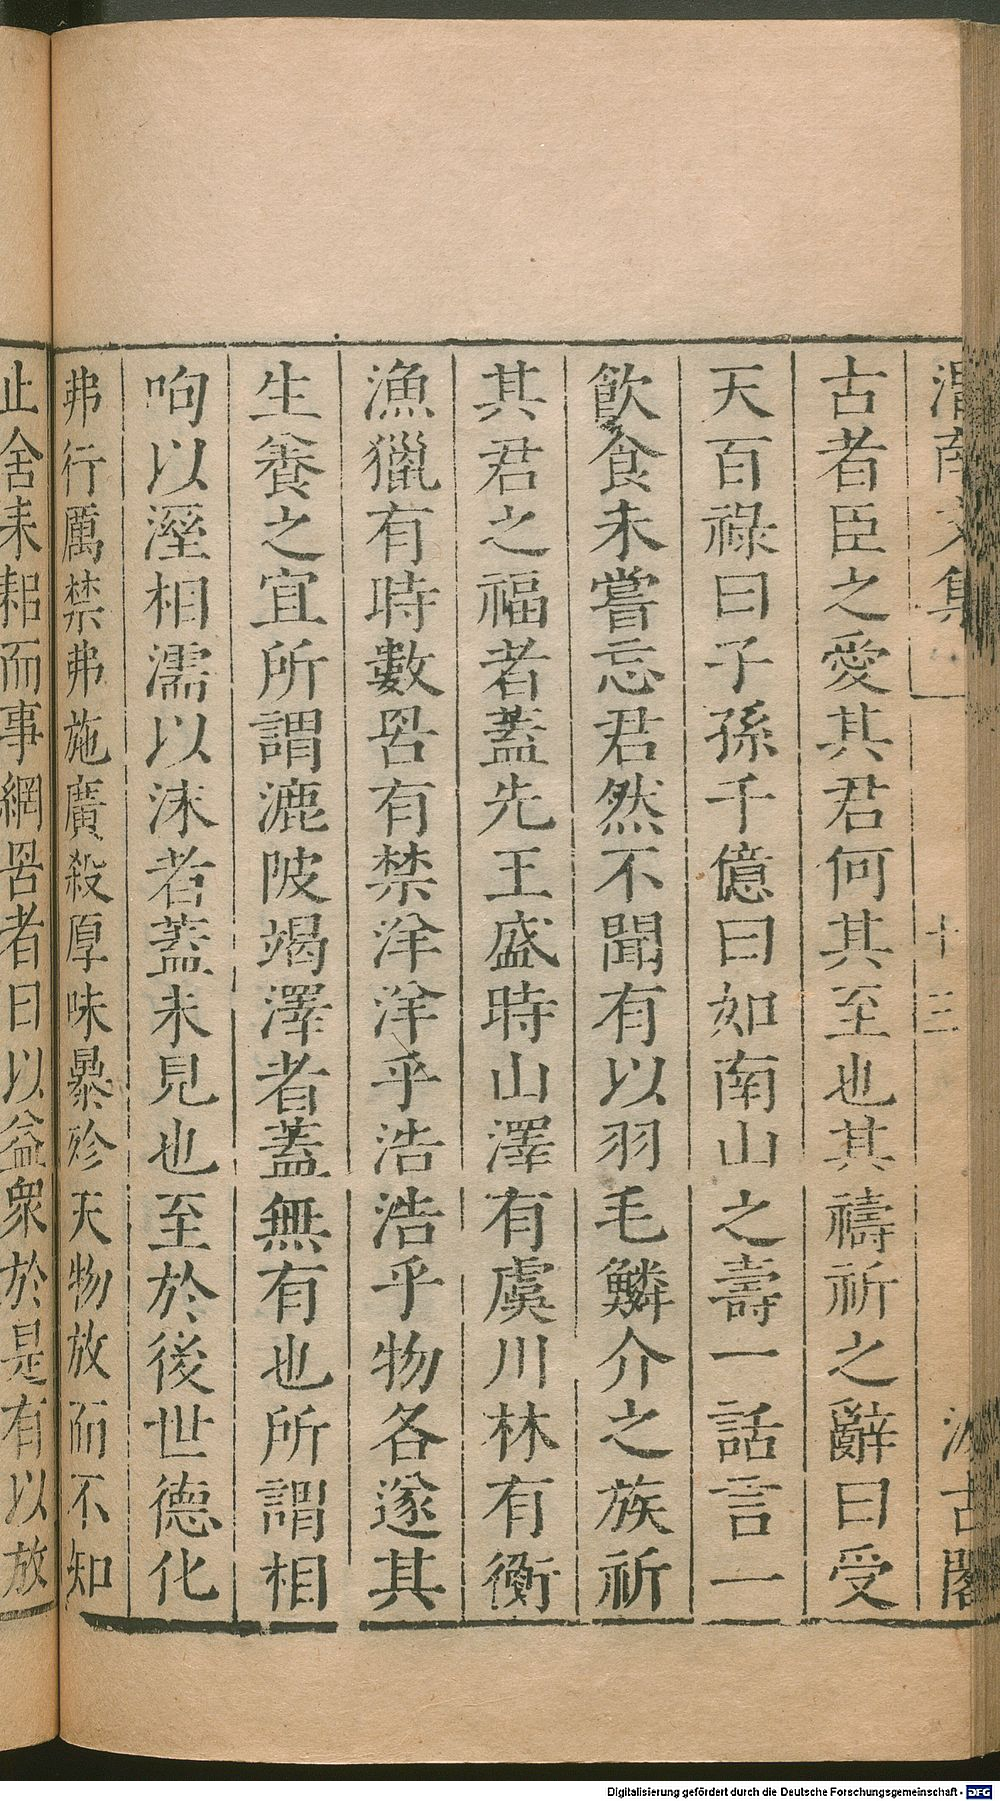 渭南文集
十三
汲古閣
古者臣之愛其君何其至也其禱祈之辭曰受
天百祿曰子孫千億曰如南山之壽一話言一
飲食未嘗忘君然不聞有以羽毛鱗介之族祈
其君之福者蓋先王盛時山澤有虞川林有衡
漁獵有時數罟有禁洋洋乎浩浩乎物各遂其
生養之宜所謂漉陂竭澤者蓋無有也所謂相
呴以溼相濡以沫者蓋未見也至於後世德化
弗行厲禁弗施廣殺厚味暴殄天物放而不知
止舍耒耜而事網罟者日以益衆於是有以放
Digitalisierung gefördert durch die Deutsche Forschungsgemeinschaft - DFG